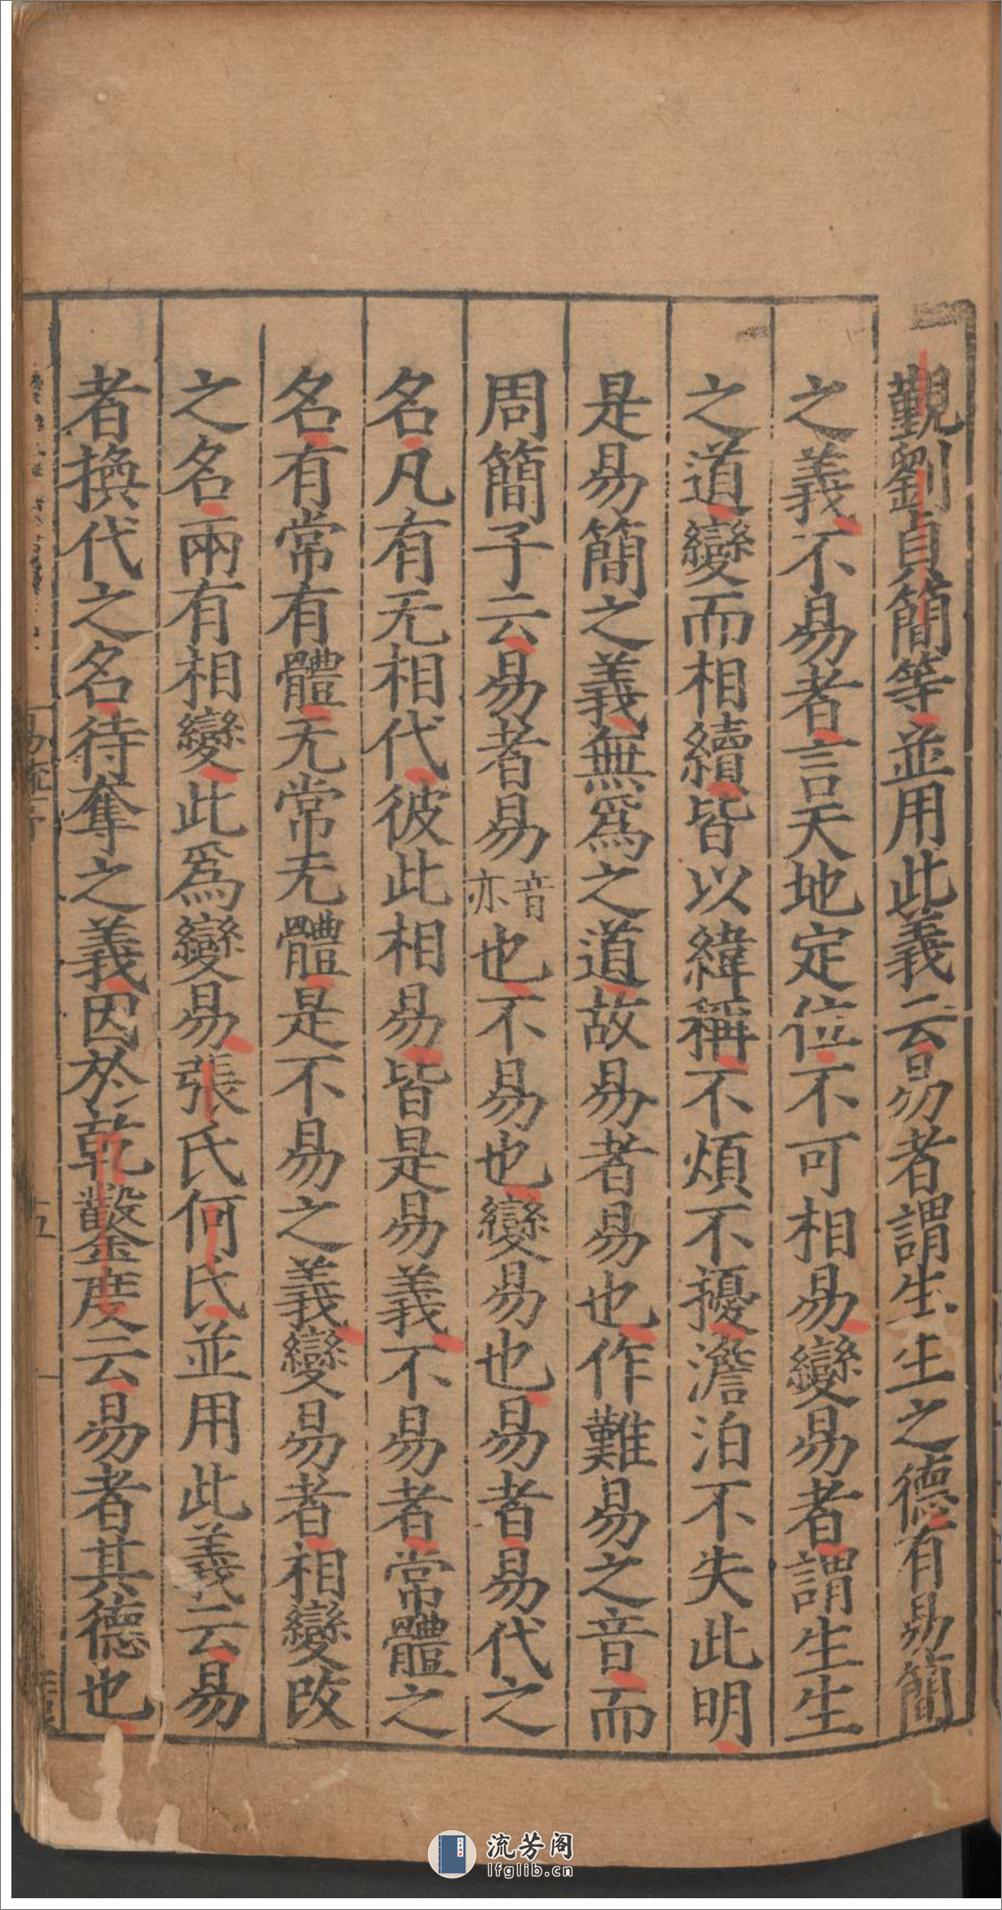 覲劉貞簡等並用此義云易者謂生生之德有易簡
之義不易者言天地定位不可相易變易者謂生生
之道變而相續皆以緯稱不煩不擾澹泊不失此明
是易簡之義無爲之道故易者易也作難易之音而
周簡子云易者易音亦也不易也變易也易者易代之
名凡有无相代彼此相易皆是易義不易者常體之
名有常有體无常无體是不易之義變易者相變改
之名兩有相變此爲變易張氏何氏並用此義云易
者換代之名待奪之義因於乾鑿度云易者其德也
易疏序
五
流芳阁
lfglib.cn